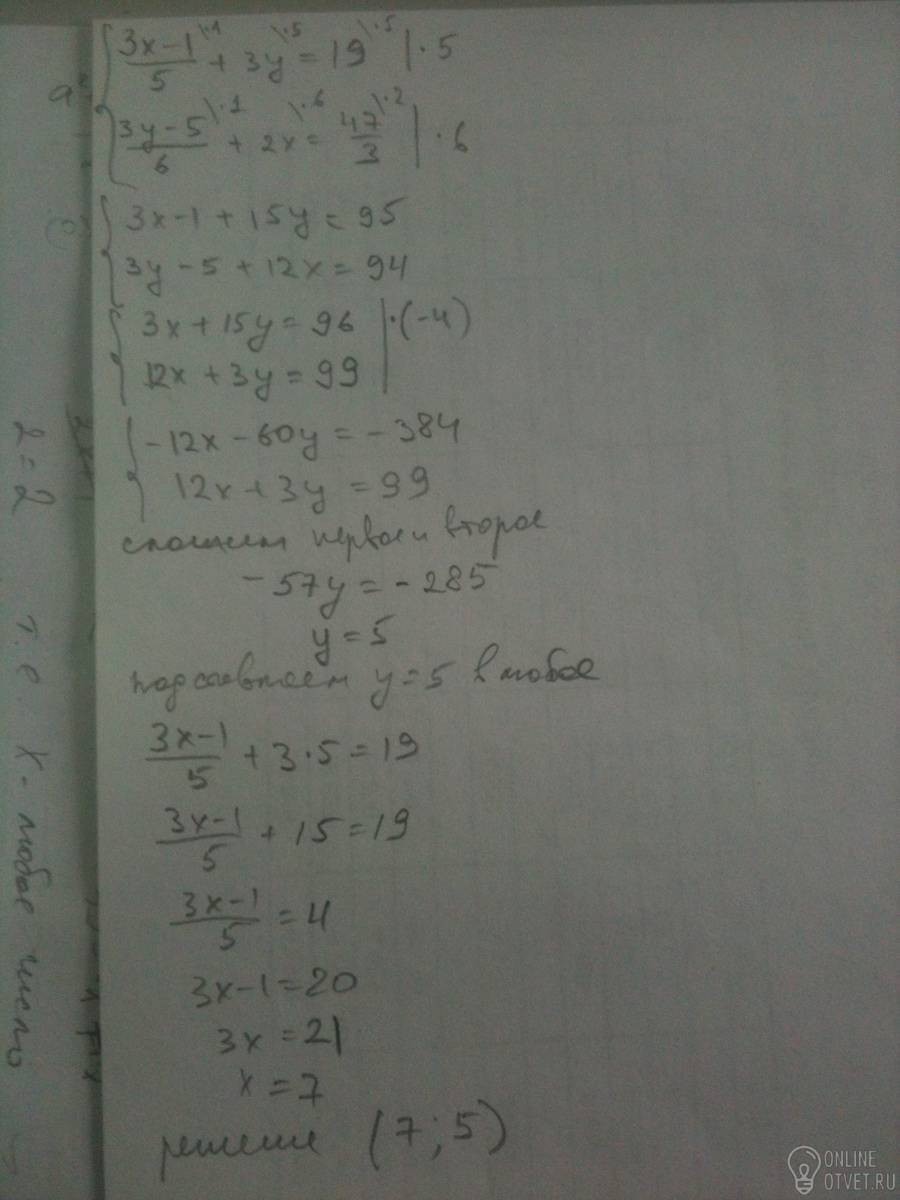 3x-1/5 \·1 + 3y \·5 = 19 \·5 | · 5
3y-5/6 \·1 + 2x \·6 = 47/3 \·2 | · 6
3x-1+15y=95
3y-5+12x=94
3x+15y=96 | ·(-4)
12x+3y=99
-12x-60y=-384
12x+3y=99
сложим первое и второе
-57y=-285
y=5
подставляем y=5 в любое
3x-1/5 + 3·5=19
3x-1/5 + 15=19
3x-1/5 = 4
3x-1=20
3x=21
x=7
решение (7;5)
2=2 т.е. x- любое число
ONLINE
OTVET.RU